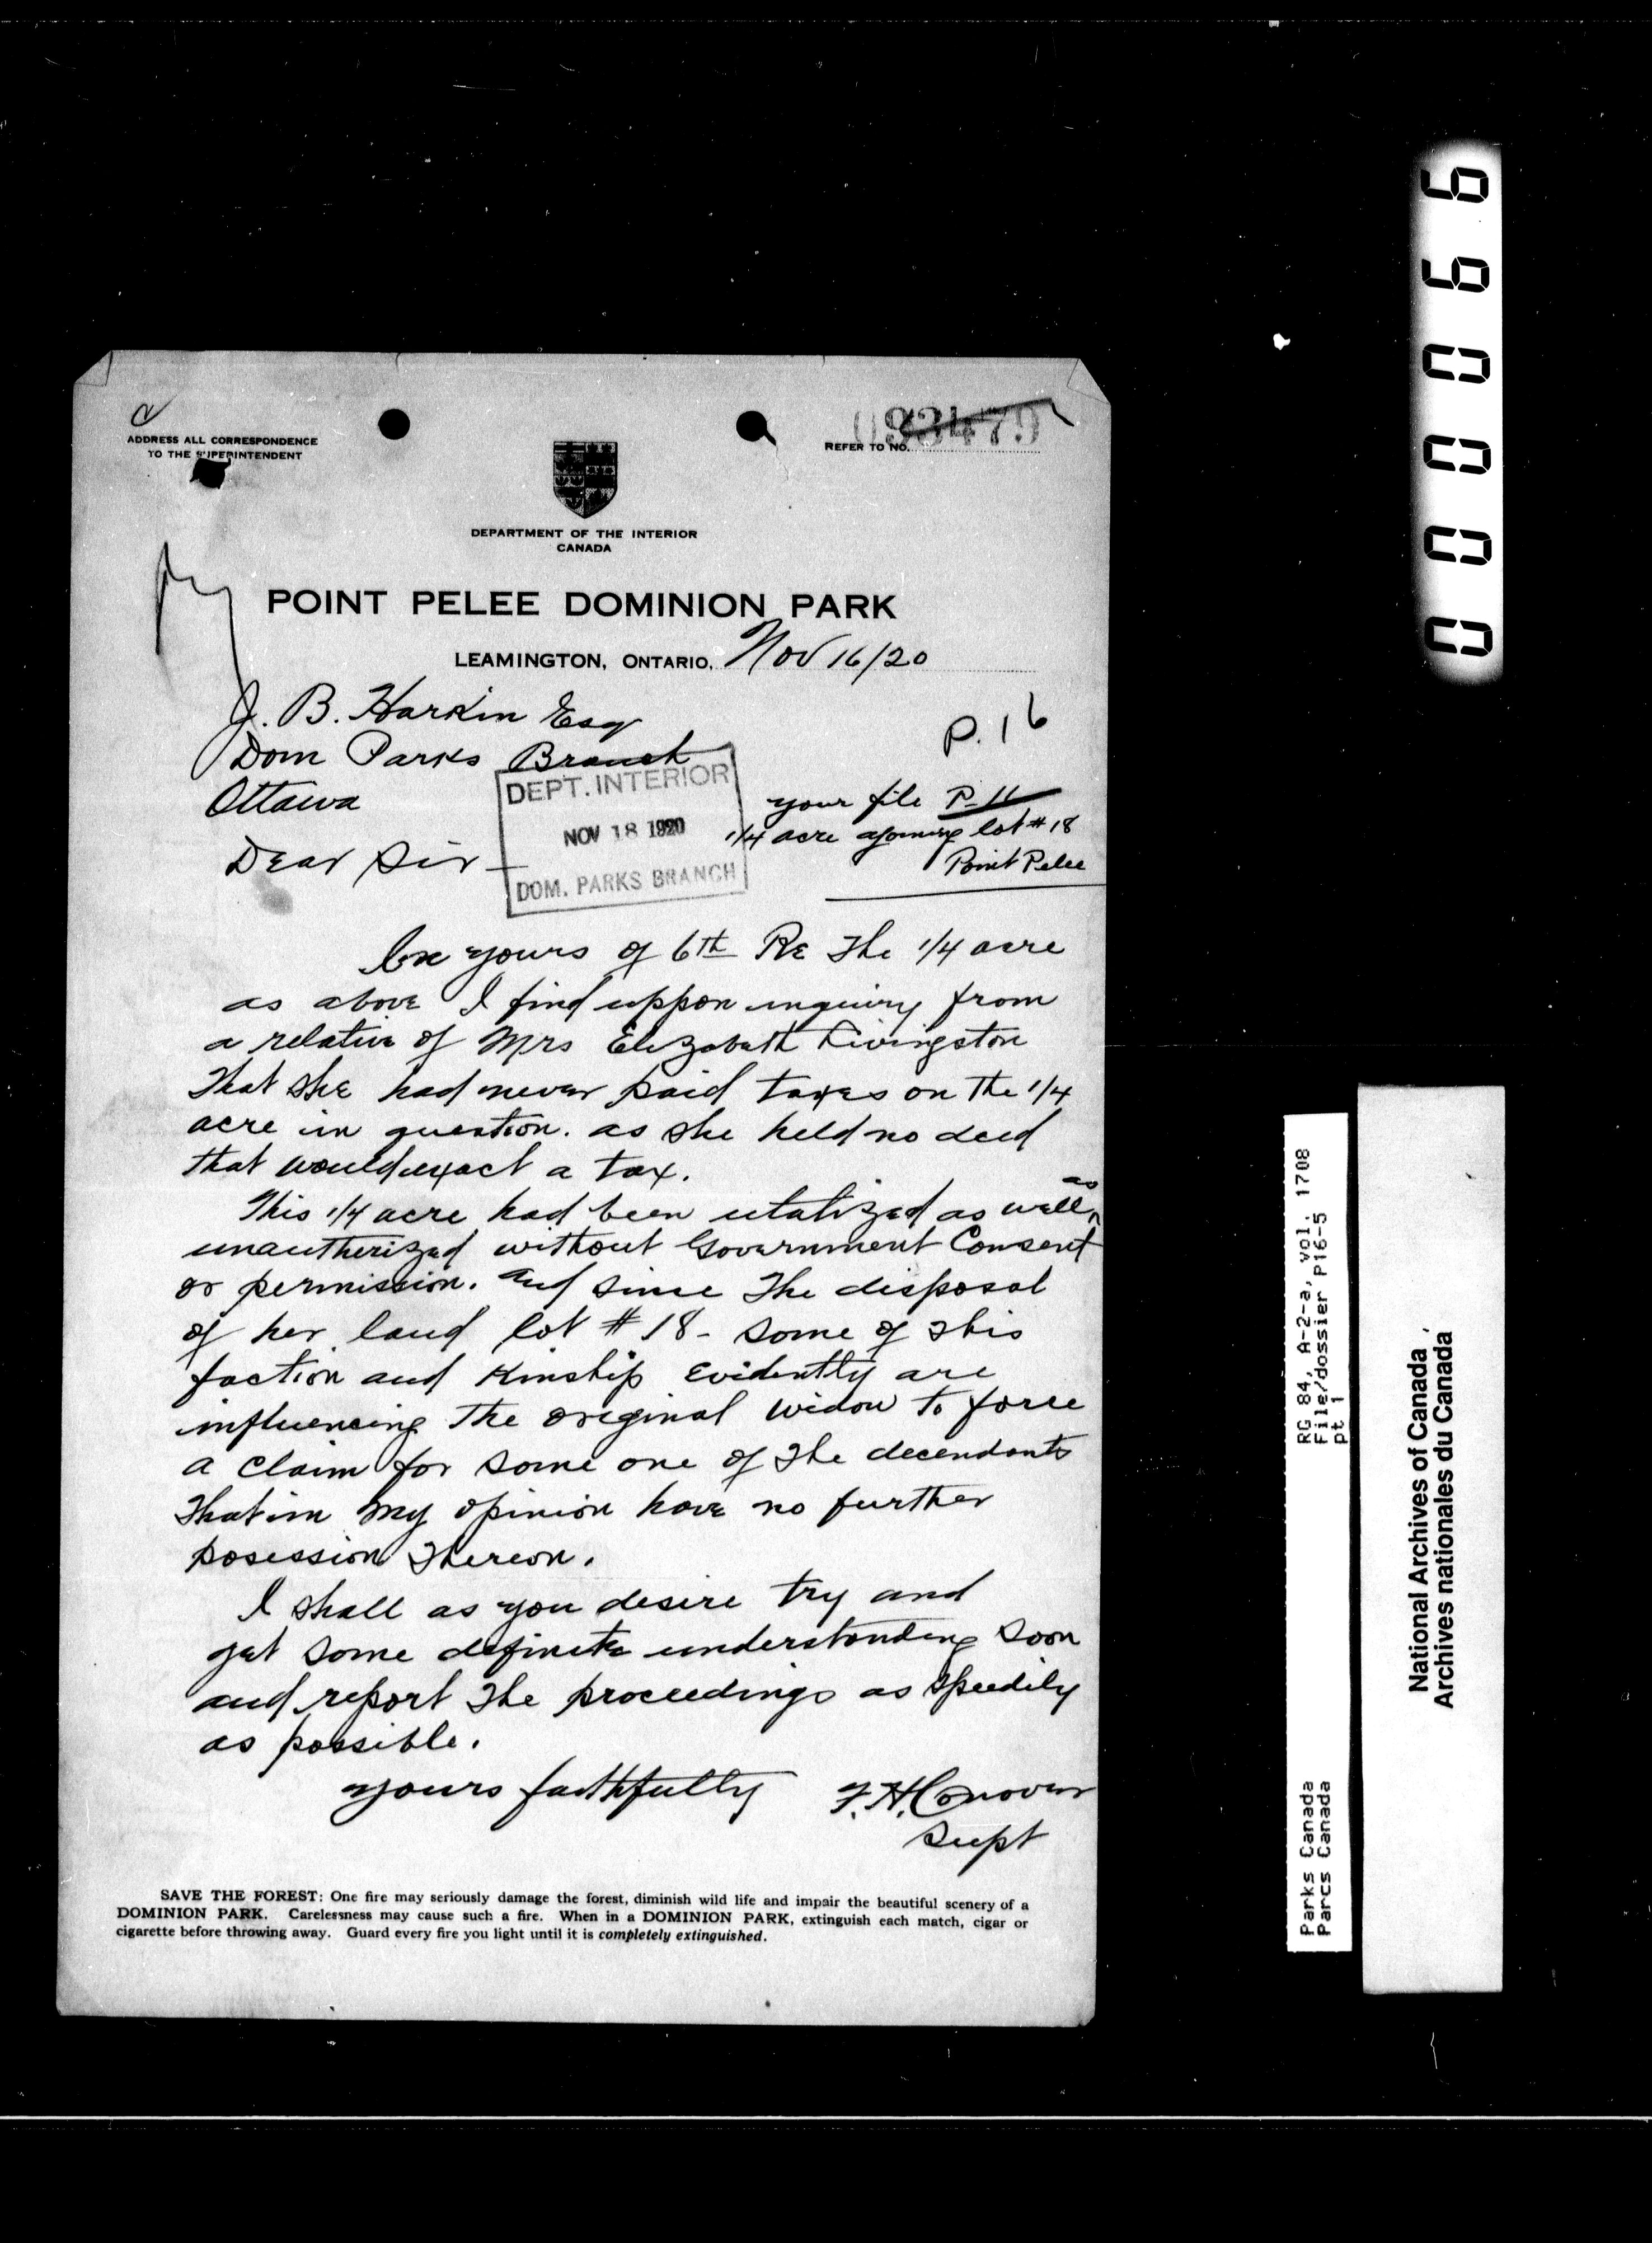 ADDRESS ALL CORRESPONDENCE
TO THE SUPERINTENDENT
REFER TO NO. 093479
DEPARTMENT OF THE INTERIOR
CANADA
POINT PELEE DOMINION PARK
LEAMINGTON, ONTARIO, Nov 16/20
J. B. Harkin Esq
Dom Parks Branch
Ottawa
P. 16
DEPT. INTERIOR
NOV 18 1920
DOM. PARKS BRANCH
your file P-11
1/4 acre ajoining lot # 18
Point Pelee
Dear Sir
yours of 6th Re The 1/4 acre
as above I find uppon inquiry from
a relative of Mrs Elizabeth Livingston
That she had never paid taxes on the 1/4
acre in question. as she held no deed
that would exact a tax.
This 1/4 acre had been utatized as well as
unautherized without Government Consent
or permission. and since The disposal
of her land lot # 18 - some of this
faction and Kinship Evidently are
influencing The original widow To force
a claim for some one of The decendants
That in my opinion have no further
posession Thereon.
I shall as you desire try and
get some definite understanding soon
and report The proceedings as speedily
as possible.
yours faithfully F. H. Conover
Supt
SAVE THE FOREST: One fire may seriously damage the forest, diminish wild life and impair the beautiful scenery of a
DOMINION PARK. Carelessness may cause such a fire. When in a DOMINION PARK, extinguish each match, cigar or
cigarette before throwing away. Guard every fire you light until it is completely extinguished.
000066
RG 84, A-2-a, vol. 1708
File/dossier P16-5
pt 1
Parks Canada
Parcs Canada
National Archives of Canada
Archives nationales du Canada